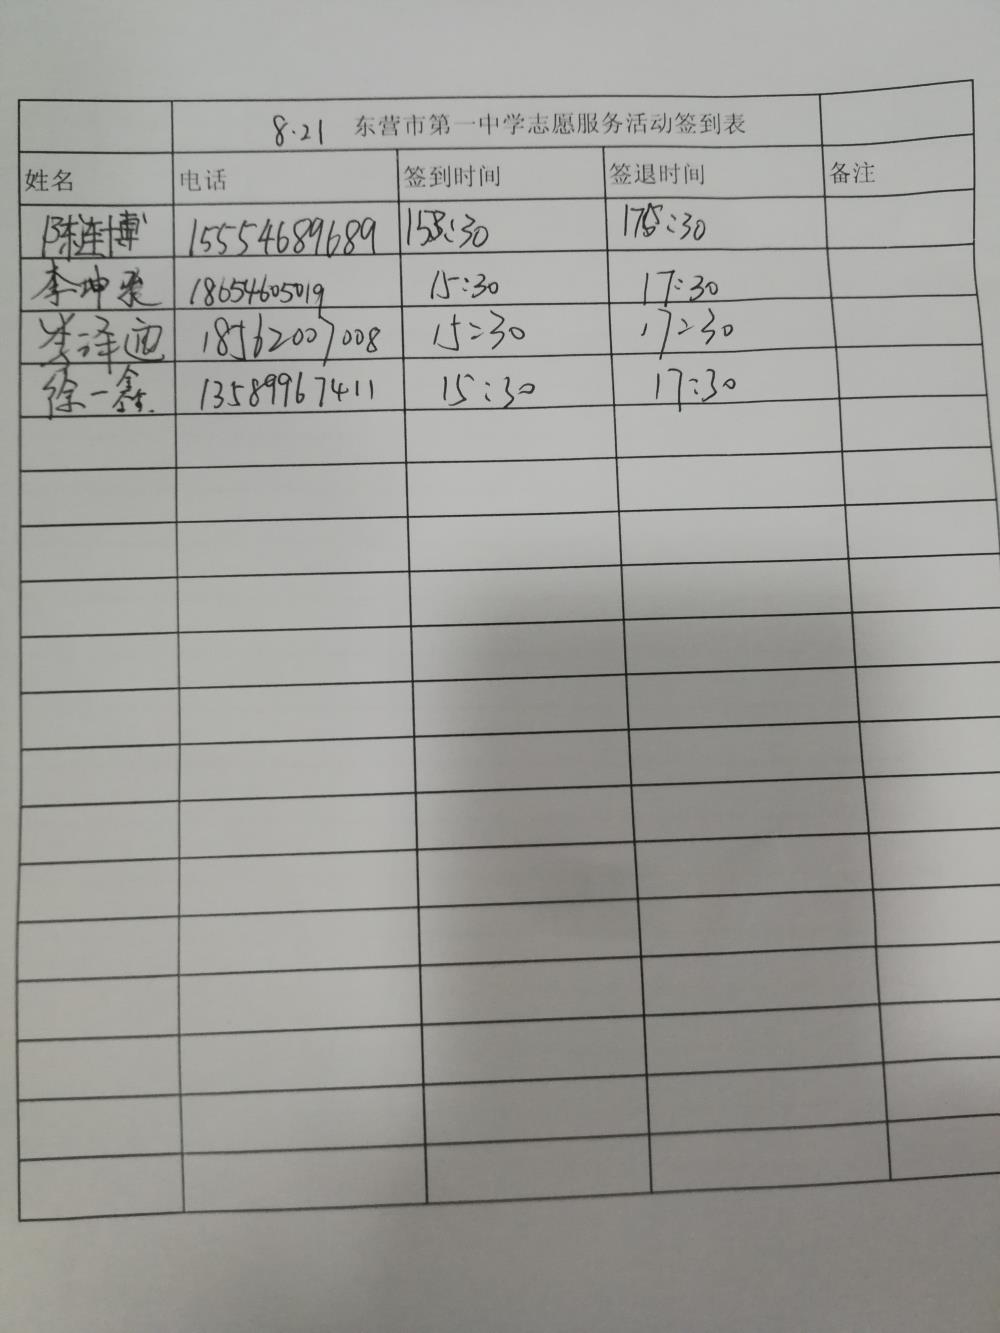 8.21 东营市第一中学志愿服务活动签到表
姓名 电话 签到时间 签退时间 备注
陈连博 15554689689 15:30 17:30
李坤 18654605019 15:30 17:30
泽 18562007008 15:30 17:30
徐一鑫 13589967411 15:30 17:30